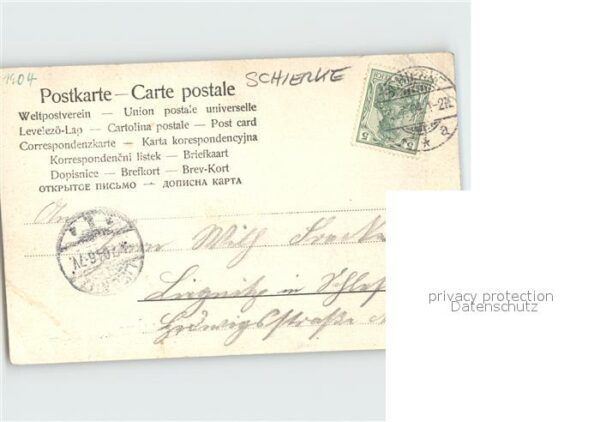 1904
SCHIERKE
Postkarte — Carte postale
Weltpostverein — Union postale universelle
Levelező-Lap — Cartolina postale — Post card
Correspondenzkarte — Karta korespondencyjna
Korrespondenční listek — Briefkaart
Dopisnice — Brefkort — Brev-Kort
ОТКРЫТОЕ ПИСЬМО — ДОПИСНА КАРТА
5 5
a
An
Herrn Wilh
Liegnitz in Schles
Hedwigsstraße
privacy protection
Datenschutz